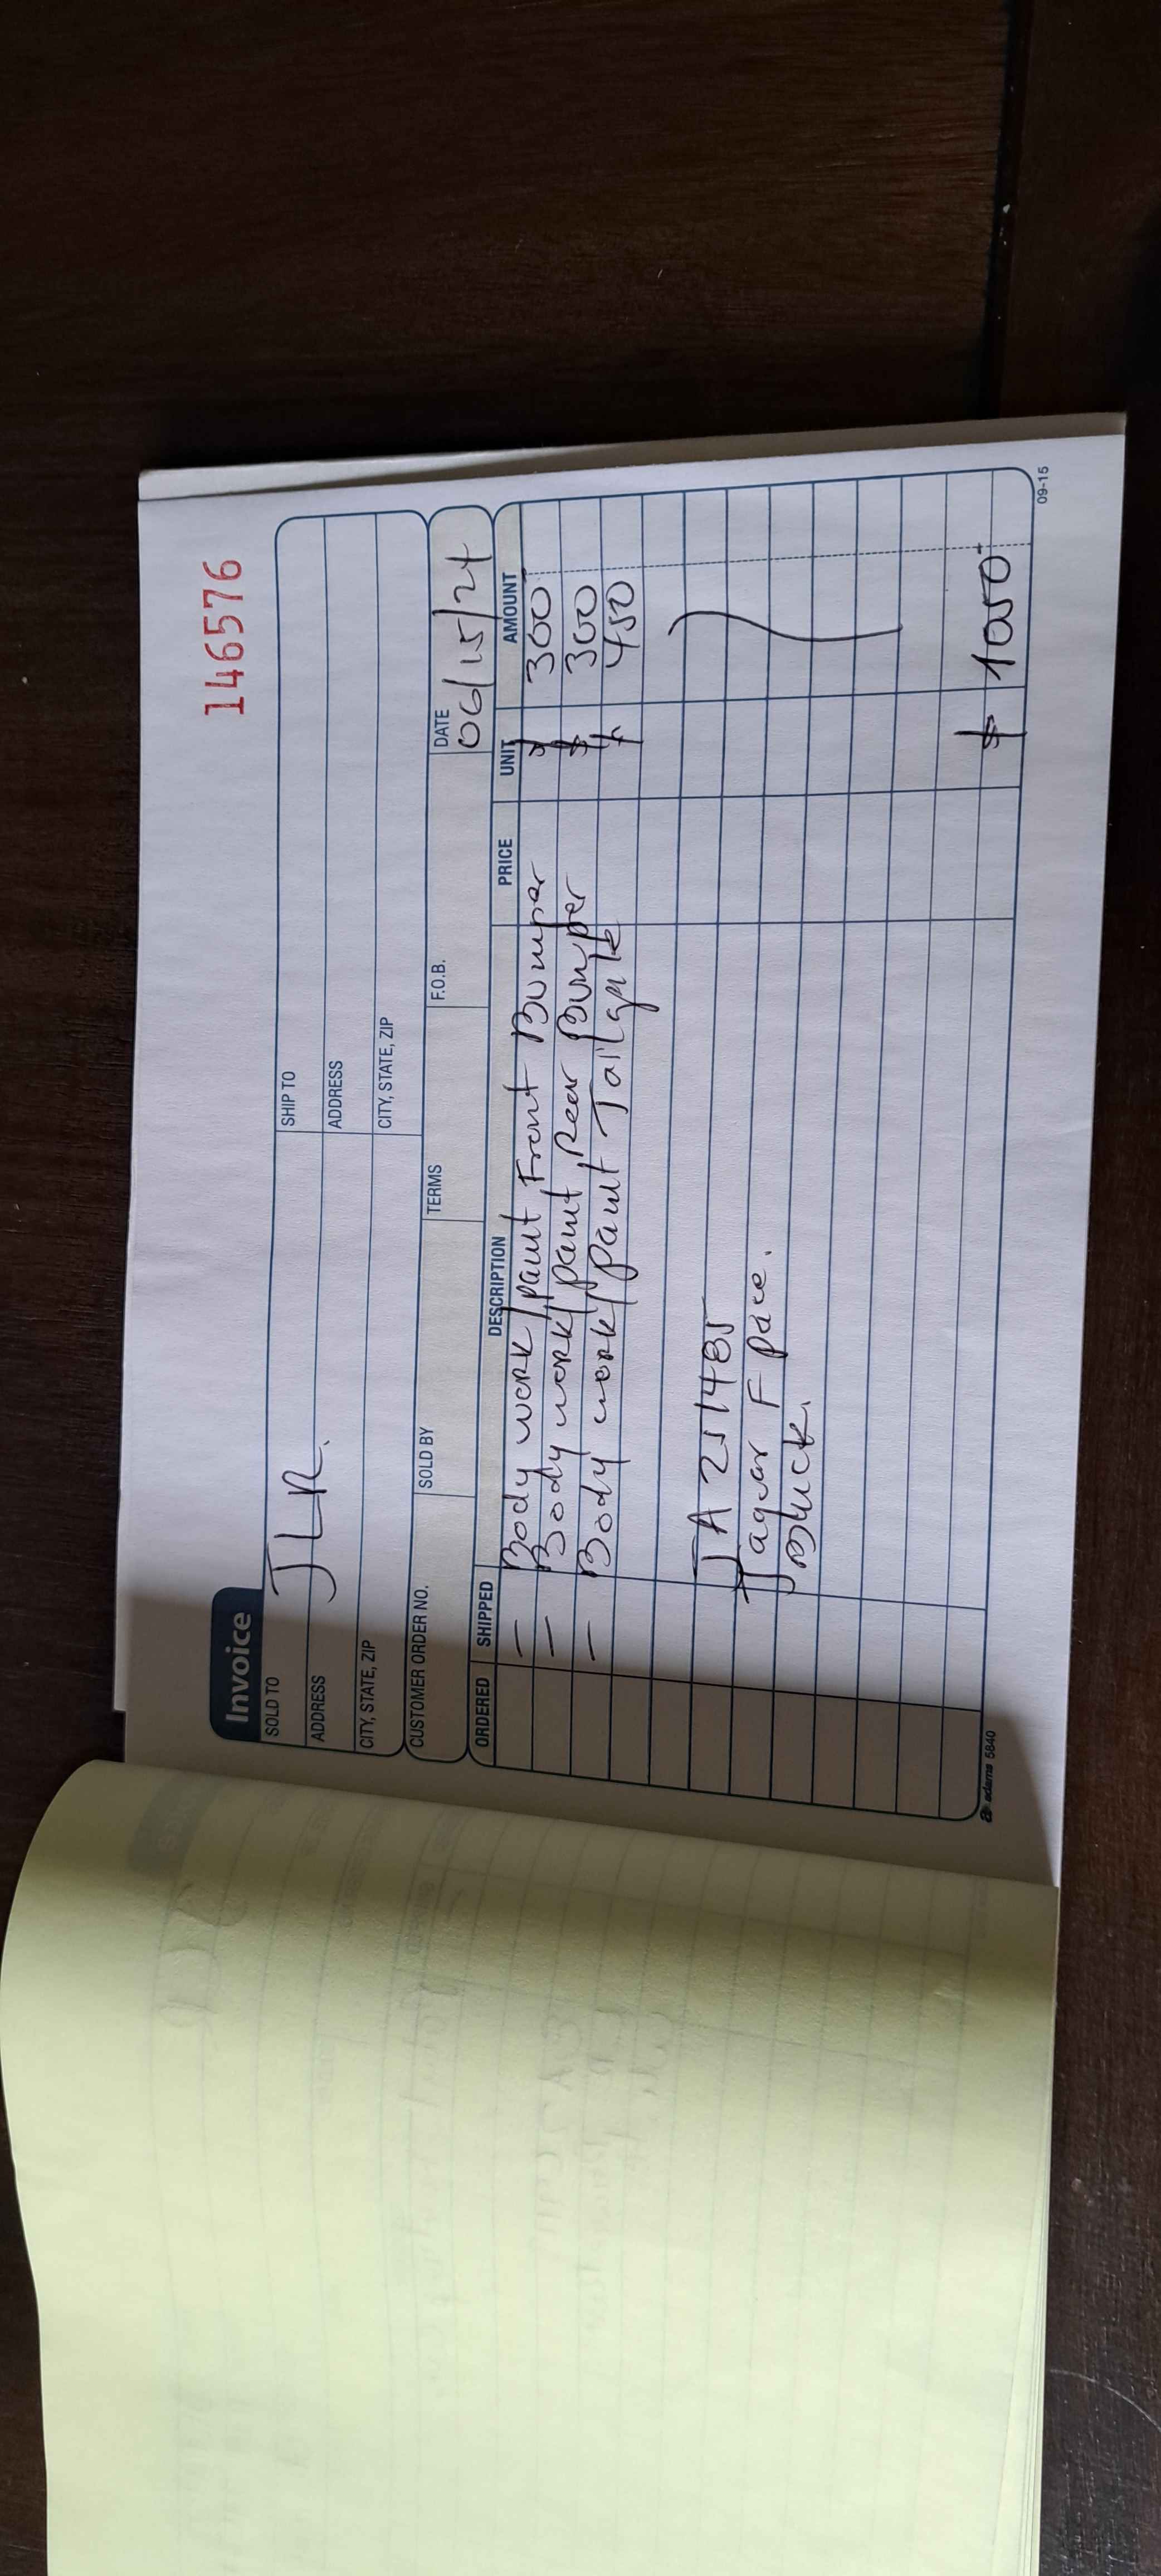 146576
Invoice
SOLD TO JLR.
SHIP TO
ADDRESS
ADDRESS
CITY, STATE, ZIP
CITY, STATE, ZIP
CUSTOMER ORDER NO. SOLD BY TERMS F.O.B. DATE 06/15/24
ORDERED SHIPPED DESCRIPTION PRICE UNIT AMOUNT
— Body work/paint Front Bumper $ 300
— Body work/paint, Rear Bumper $ 300
— Body work/paint Tailgate $ 450
JA251485
Jaguar F pace.
Black.
$ 1050
adams 5840
09-15